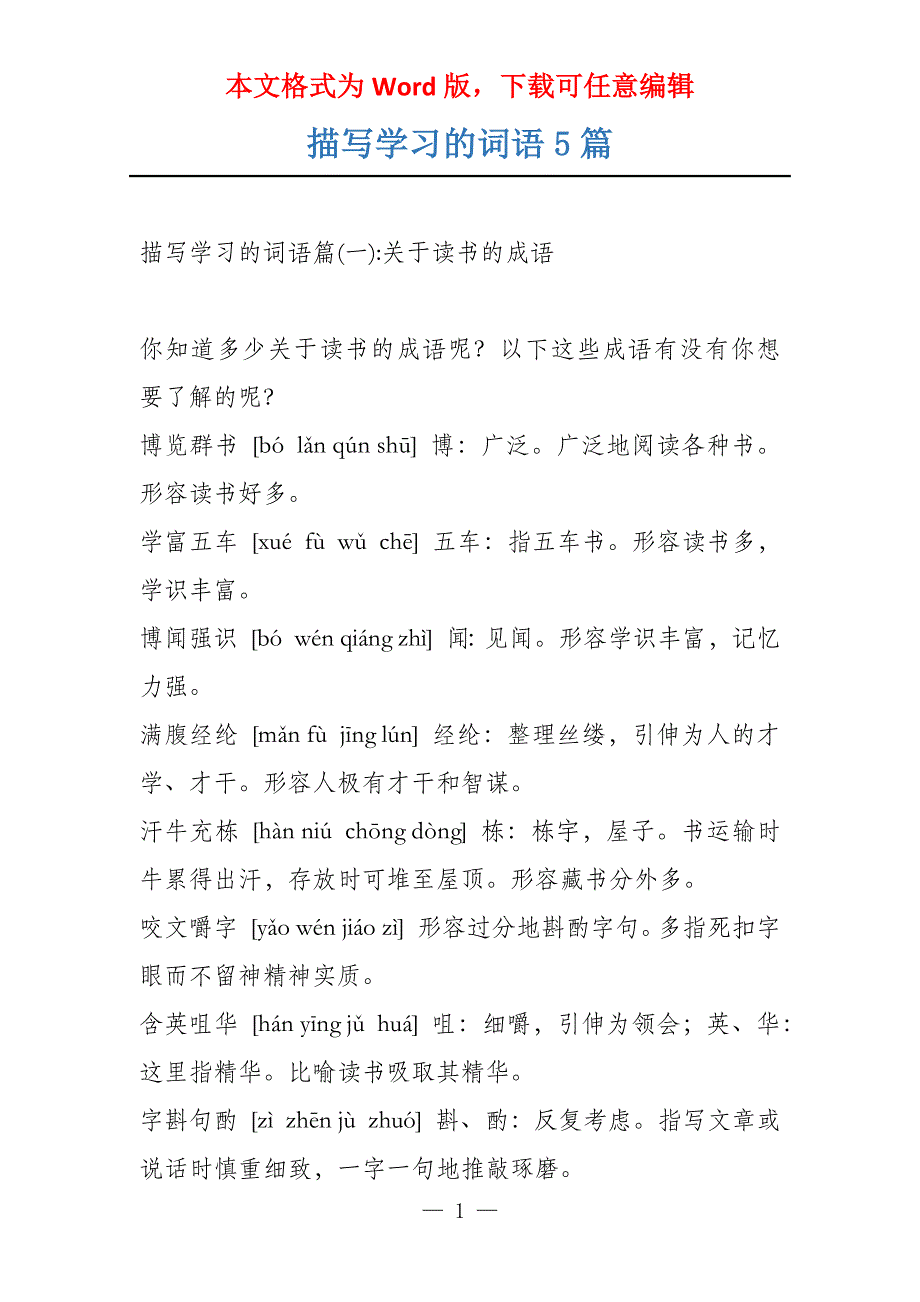 本文格式为 Word 版，下载可任意编辑
描写学习的词语 5 篇
描写学习的词语篇(一):关于读书的成语
你知道多少关于读书的成语呢？以下这些成语有没有你想
要了解的呢？
博览群书 [bó lǎn qún shū] 博：广泛。广泛地阅读各种书。
形容读书好多。
学富五车 [xué fù wǔ chē] 五车：指五车书。形容读书多，
学识丰富。
博闻强识 [bó wén qiáng zhì] 闻：见闻。形容学识丰富，记忆
力强。
满腹经纶 [mǎn fù jīng lún] 经纶：整理丝缕，引伸为人的才
学、才干。形容人极有才干和智谋。
汗牛充栋 [hàn niú chōng dòng] 栋：栋宇，屋子。书运输时
牛累得出汗，存放时可堆至屋顶。形容藏书分外多。
咬文嚼字 [yǎo wén jiáo zì] 形容过分地斟酌字句。多指死扣字
眼而不留神精神实质。
含英咀华 [hán yīng jǔ huá] 咀：细嚼，引伸为领会；英、华：
这里指精华。比喻读书吸取其精华。
字斟句酌 [zì zhēn jù zhuó] 斟、酌：反复考虑。指写文章或
说话时慎重细致，一字一句地推敲琢磨。
— 1 —